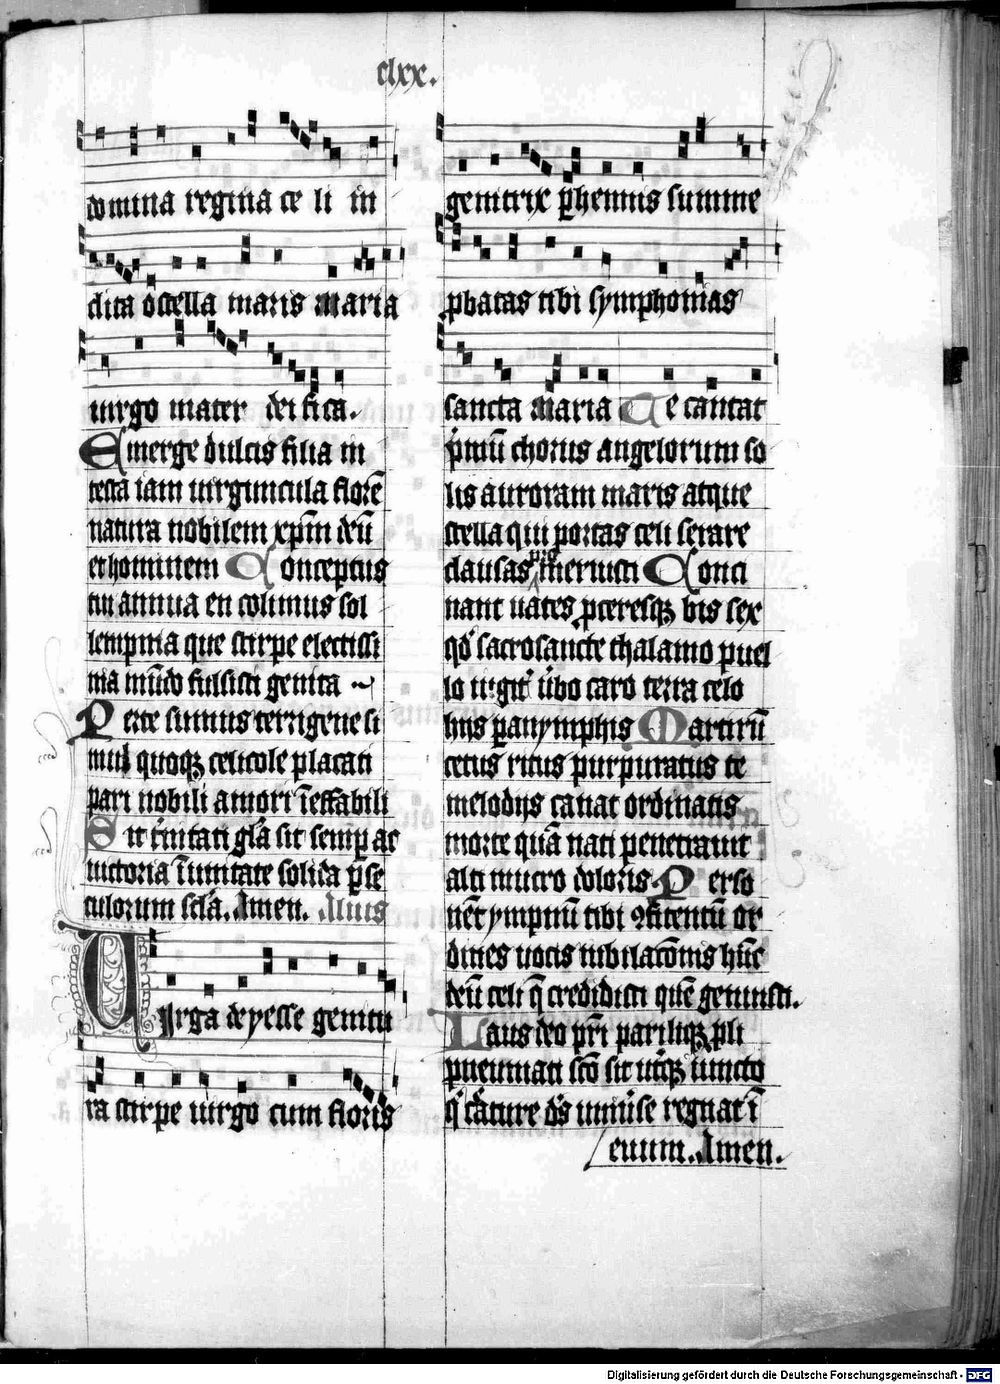 clxx.
domina regina ce li in
clita o stella maris maria
uirgo mater dei fica.
Emerge dulcis filia in
testa iam uirguncula flore
natura nobilem xpm deu
et hominem Conceptus
tui annua en colimus sol
lempnia que stirpe electissi
ma mudo fulsisti genita
Perte sumus terrigene si
mul quoqz celicole placati
pari nobili amori ieffabili
Sit tinitati gla sit semp ac
uictoria i unitate solida p se
culorum scla. Amen. Alius
Uirga de yesse genitu
ra stirpe uirgo cum floris
genitrix phennis summe
pbatas tibi symphonias
sancta Maria Te cantat
pmu chorus angelorum so
lis auroram maris atque
stella qui portas celi serare
clausas pro meruisti Conci
nant uates pceresqz bis sex
qd sacrosancte thalamo puel
lo uigit ubo caro terra celo
hijs panymphis Martiru
cetus ritus purpuratus te
melodijs canat ordinatis
morte qua nati penetrauit
alti mucro doloris. Perso
net tympnu tibi 9fitentu or
dines uocis iubilacois huc
deu celi q credidisti que genuisti.
Laus deo pri pariliqz pli
pneumati sco sit utqz iuncto
q cature ds uniuse regnat i
euum. Amen.
Digitalisierung gefördert durch die Deutsche Forschungsgemeinschaft - DFG